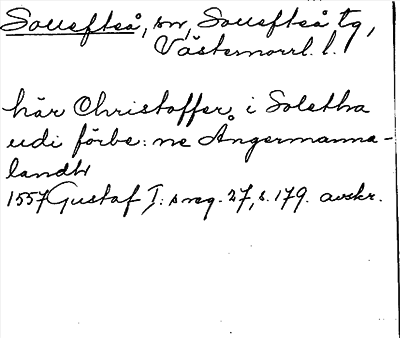 Sollefteå, sn, Sollefteå tg,
Västernorrl. l.
här Christoffer i Soletha
udi förbe:ne Ångermanna-
landh
1557 Gustaf I: s reg. 27, s. 179. avskr.